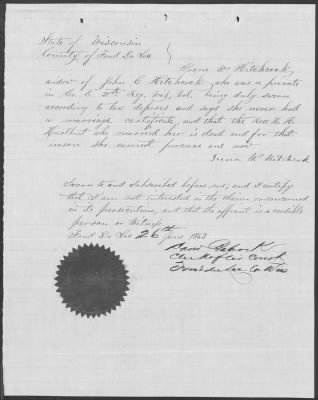 State of Wisconsin
County of Fond Du Lac
Irene W Hitchcock
widow of John E Hitchcock, who was a private
in Co Reg. Wis. Vol. being duly sworn
according to law deposes and says she never had
a marriage certificate, and that the Rev.
Hurlbut who married her is dead and for that
reason she cannot procure one
Irena W Hitchcock
Sworn to and Subscribed before me, and I certify
that I am not interested in the claim
in its prosecution, and that the affiant is a credible
person or witness
Fond Du Lac 26th June 1863
Clerk of Cir Court
Fond du Lac Co Wis